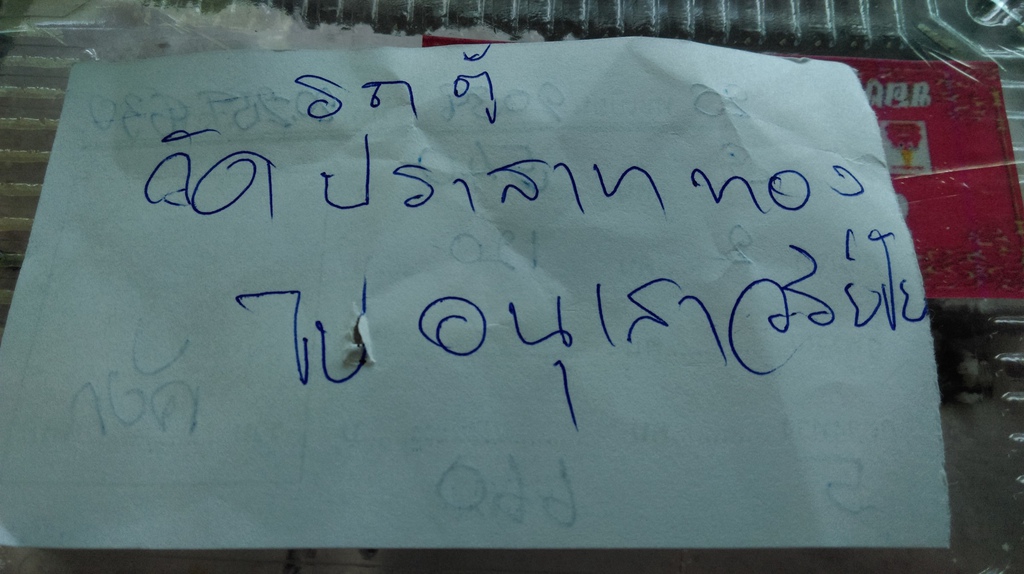 รถตู้
วัดปราสาททอง
ไป อนุเสาวรีย์ชัย